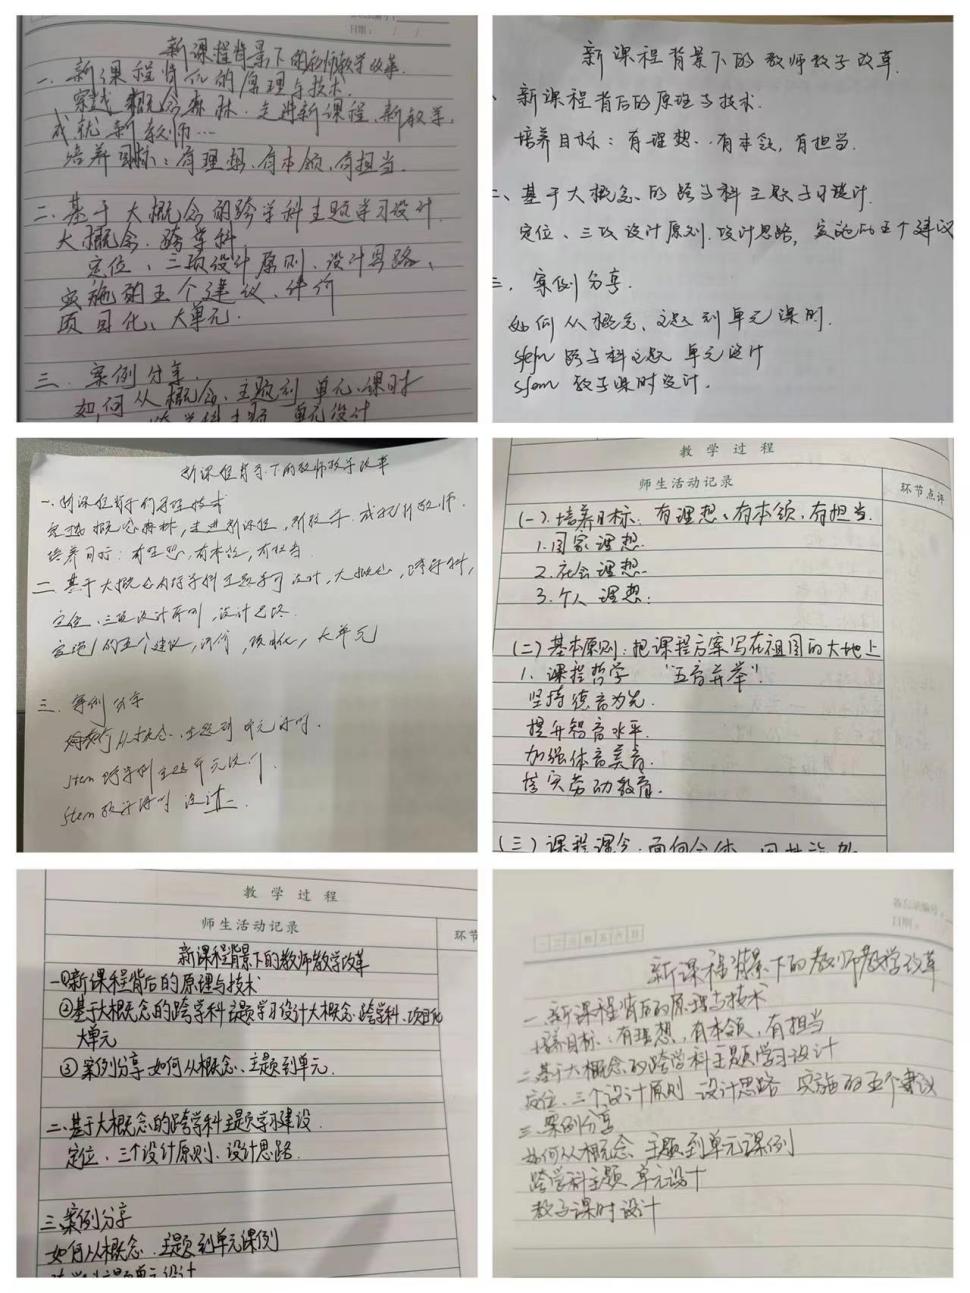 日期： / /
新课程背景下的教师教学改革.
一、新课程背后的原理与技术.
穿越概念森林.走进新课程、新教学,
成就新教师…
培养目标：有理想、有本领、有担当.
二、基于大概念的跨学科主题学习设计.
大概念.跨学科
定位、三项设计原则、设计思路、
实施的五个建议、评价
项目化、大单元.
三、案例分享
如何从概念、主题到单元、课时
跨学科主题 单元设计
新课程背景下的教师教学改革.
新课程背后的原理与技术.
培养目标：有理想.有本领,有担当.
二、基于大概念的跨学科主题学习设计.
定位、三项设计原则.设计思路,实施的五个建议
三、案例分享.
如何从概念、主题到单元课时.
stem 跨学科主题 单元设计
stem 教学课时设计.
新课程背景下的教师教学改革
一.新课程背后的原理技术
穿越概念森林,走进新课程,新教学.成就新教师.
培养目标：有理想,有本领,有担当
二、基于大概念的跨学科主题学习设计,大概念,跨学科,
定位、三项设计原则,设计思路
实施的五个建议,评价,项目化,大单元
三、案例分享
如何从概念、主题到单元课时.
stem 跨学科主题单元设计.
stem 教学课时 设计.
教 学 过 程
师生活动记录
环节点评
(一).培养目标：有理想、有本领、有担当.
1.国家理想.
2.社会理想.
3.个人理想：
(二)基本原则：把课程方案写在祖国的大地上
1.课程哲学 “五育并举”.
坚持德育为先.
提升智育水平.
加强体育美育.
落实劳动教育.
教 学 过 程
师生活动记录
环节
新课程背景下的教师教学改革
一①新课程背后的原理与技术
②基于大概念的跨学科主题学习设计大概念.跨学科、项目化
大单元
③案例分享 如何从概念、主题到单元.
二、基于大概念的跨学科主题学习建设.
定位、三个设计原则、设计思路.
三、案例分享
如何从概念、主题到单元课例
跨学科主题单元设计
新课程背景下的教师教学改革
一.新课程背后的原理与技术
培养目标：有理想,有本领,有担当
二基于大概念的跨学科主题学习设计
定位、三个设计原则 设计思路 实施的五个建议
三.案例分享
如何从概念、主题到单元课例
跨学科主题单元设计
教学课时设计